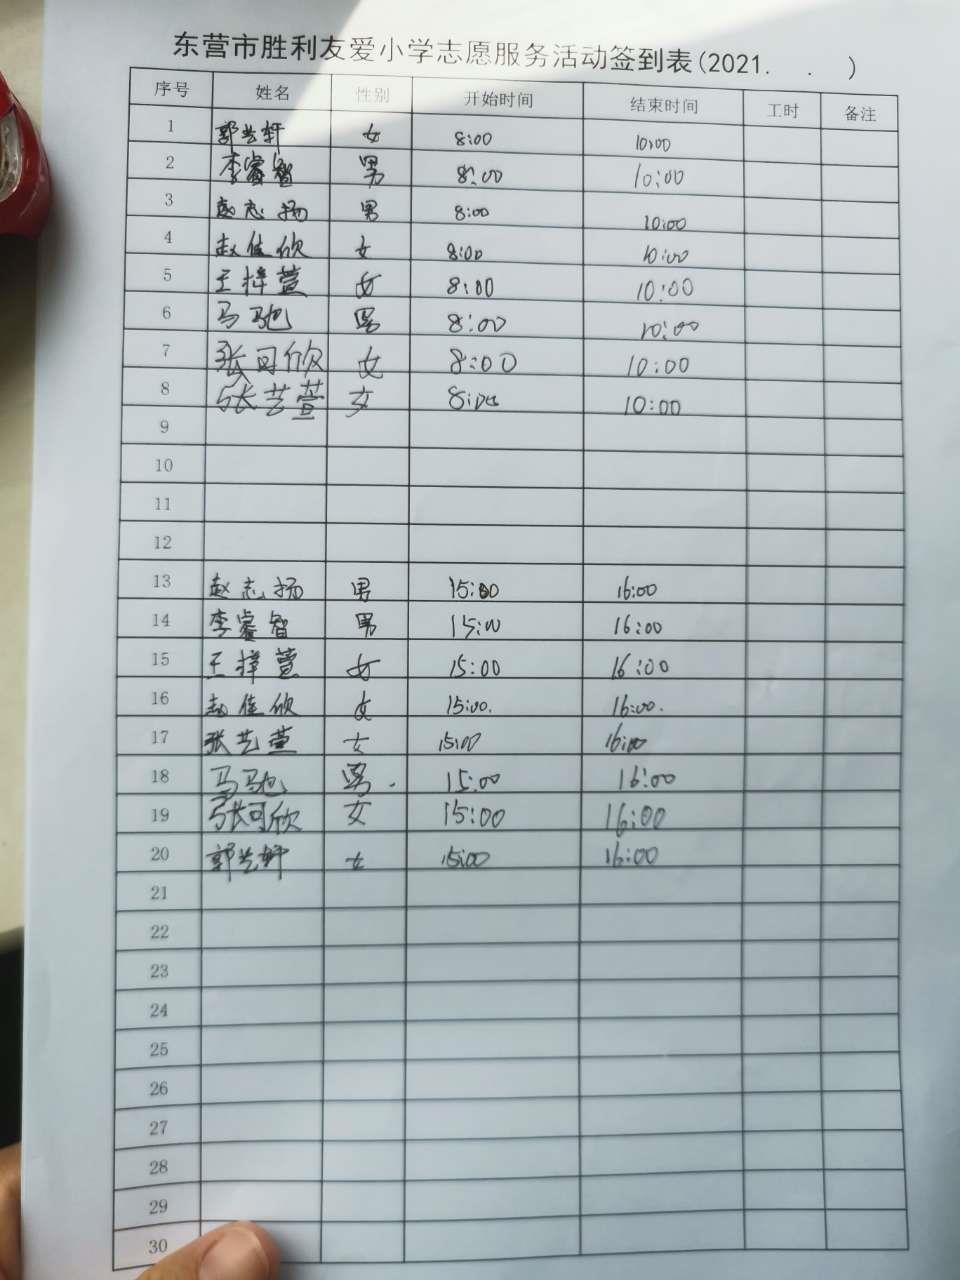 东营市胜利友爱小学志愿服务活动签到表(2021. . )
序号 姓名 性别 开始时间 结束时间 工时 备注
1 郭艺轩 女 8:00 10:00
2 李睿智 男 8:00 10:00
3 赵志扬 男 8:00 10:00
4 赵佳欣 女 8:00 10:00
5 王梓萱 女 8:00 10:00
6 马驰 男 8:00 10:00
7 张可欣 女 8:00 10:00
8 张艺萱 女 8:00 10:00
9
10
11
12
13 赵志扬 男 15:00 16:00
14 李睿智 男 15:00 16:00
15 王梓萱 女 15:00 16:00
16 赵佳欣 女 15:00. 16:00.
17 张艺萱 女 15:00 16:00
18 马驰 男. 15:00 16:00
19 张可欣 女 15:00 16:00
20 郭艺轩 女 15:00 16:00
21
22
23
24
25
26
27
28
29
30